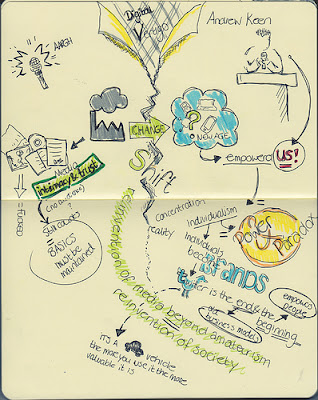 Digital
Vertigo
Andrew Keen
AARGH
CHANGE
?
NEW AGE
empowers us!
Shift
Media
intimacy & trust
= FILTERED
Still counts
=
BASICS
must be
maintained
Concentration
Individualism
reality
Individuals
become
brands
Power
Paradox
Twitter is the end & the
beginning
empowers
people
our
business model
reinvention of media beyond amateurism
reinvention of society
IT'S A vehicle
the more you use it the more
valuable it is